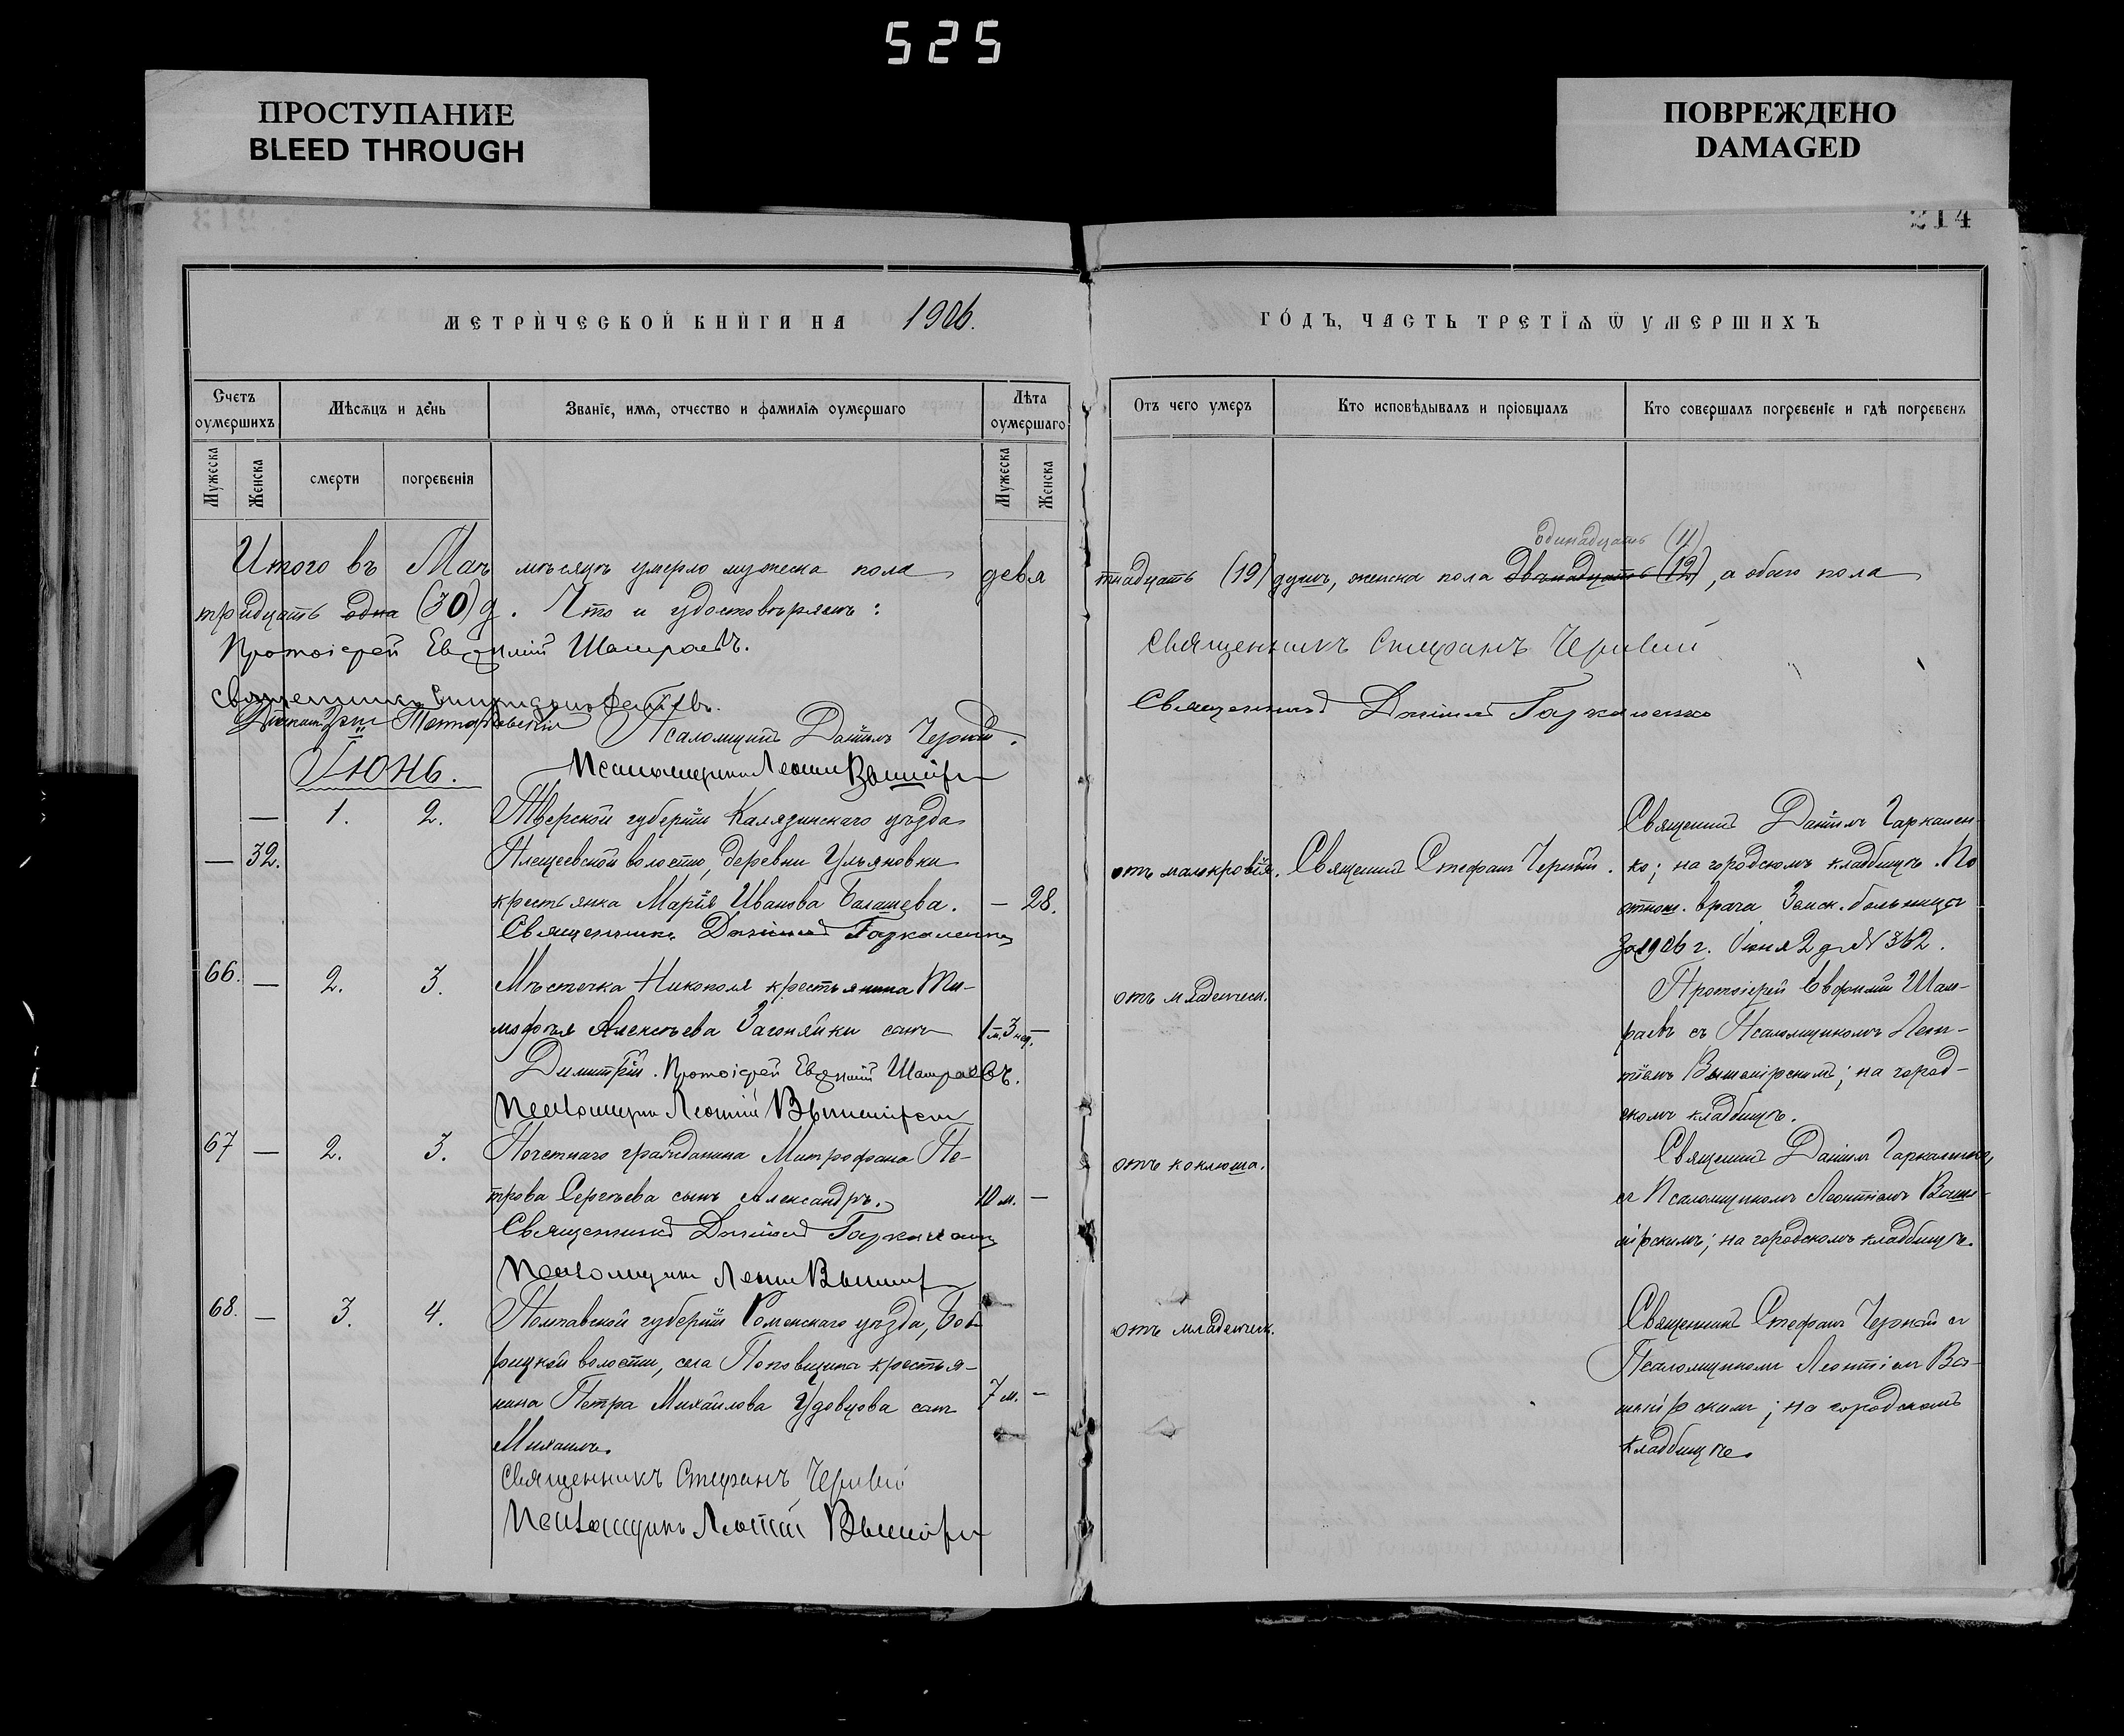 525
ПРОСТУПАНИЕ
BLEED THROUGH
ПОВРЕЖДЕНО
DAMAGED
214
МЕТРИЧЕСКОЙ КНИГИ НА 1906.
ГОДЪ, ЧАСТЬ ТРЕТІЯ Ѿ УМЕРШИХЪ
Счетъ оумершихъ
Мѣсяцъ и день
Званіе, имя, отчество и фамилія оумершаго
Лѣта оумершаго
Отъ чего умеръ
Кто исповѣдывалъ и пріобщалъ
Кто совершалъ погребеніе и гдѣ погребенъ
Мужеска
Женска
смерти
погребенія
Мужеска
Женска
Одинадцать (11)
Итого въ Маѣ мѣсяцѣ умерло мужеска пола девятнадцать (19) душъ, женска пола двѣнадцать (12), а обоего пола
тридцать одна (30) д. Что и удостовѣряемъ:
Протоіерей Евфимій
Священникъ Стефанъ Черный
Священникъ Даніилъ Гаркаленко
Псаломщикъ Даніилъ
Псаломщикъ Леонтій
Іюнь.
— 32. 1. 2. Тверской губерніи Калязинскаго уѣзда
Плещеевской волости, деревни Ульяновки
крестьянка Марія Иванова Балашева. — 28.
Священникъ Даніилъ Гаркаленко
отъ малокровія.
Священникъ Стефанъ Черный.
Священникъ Даніилъ Гаркален-
ко; на городскомъ кладбищѣ. По
отнош. врача Земск. больницы
за 1906 г. Іюня 2 д. № 362.
66. — 2. 3. Мѣстечка Никополя крестьянина Ти-
мофея Алексѣева Загоняйки сынъ 1 м. 3 нед. —
Димитрій. Протоіерей Евфимій
Псаломщикъ Леонтій
отъ младенческ.
Протоіерей Евфимій
съ Псаломщикомъ Леон-
тіемъ; на город-
скомъ кладбищѣ.
67 — 2. 3. Почетнаго гражданина Митрофана Пе-
трова Сергѣева сынъ Александръ. 10 м. —
Священникъ Даніилъ Гаркаленко
Псаломщикъ Леонтій
отъ коклюша.
Священникъ Даніилъ Гаркаленко
съ Псаломщикомъ Леонтіемъ
на городскомъ кладбищѣ.
68. — 3. 4. Полтавской губерніи Роменскаго уѣзда, Боб-
рицкой волости, села Поповщина крестья-
нина Петра Михайлова Удовцова сынъ 7 м. —
Михаилъ.
Священникъ Стефанъ Черный
Псаломщикъ Леонтій
отъ младенческ.
Священникъ Стефанъ Черный съ
Псаломщикомъ Леонтіемъ
на городскомъ
кладбищѣ.